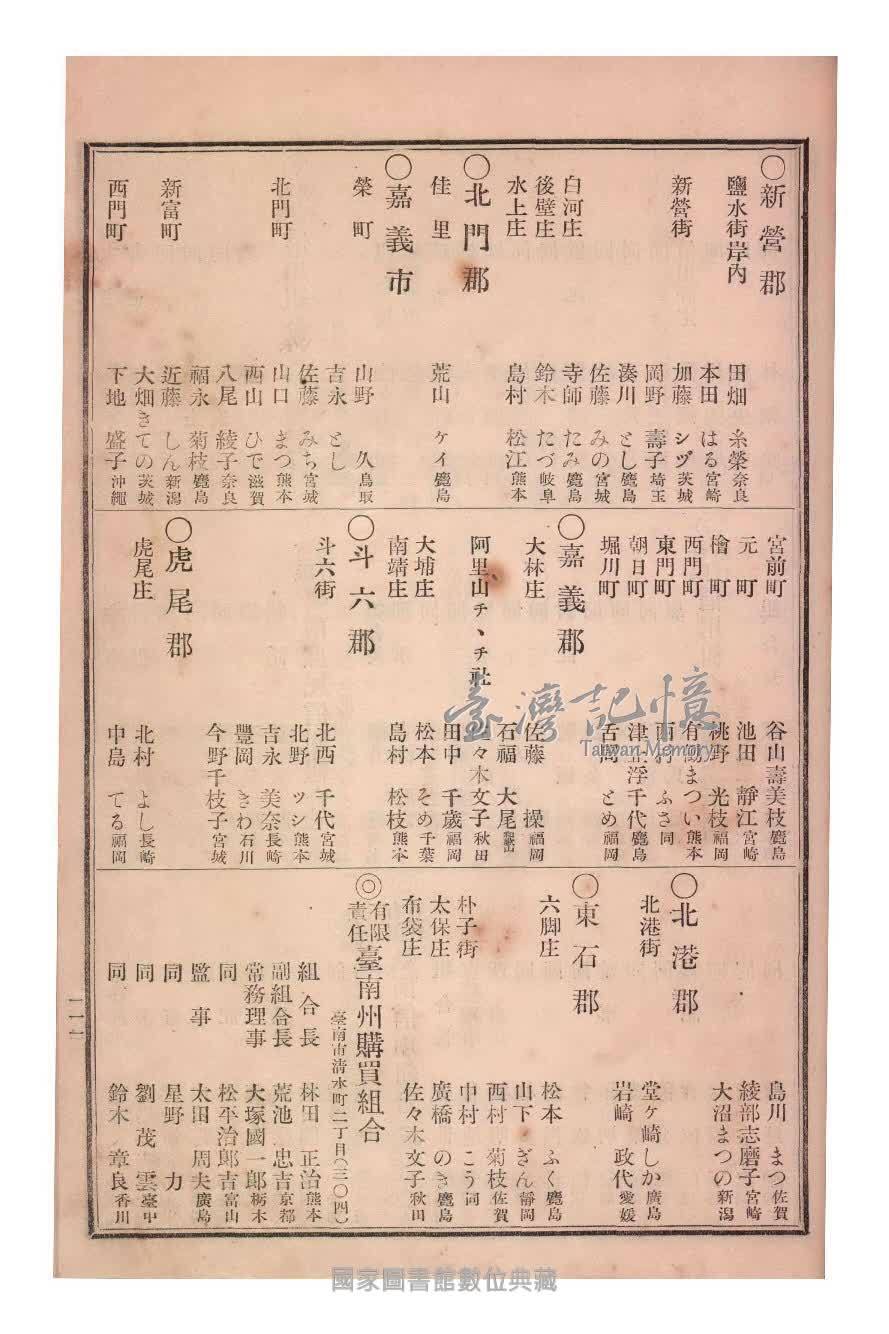 ○新營郡
鹽水街岸內
田畑 糸榮 奈良
本田 はる 宮崎
新營街
加藤 シヅ 茨城
岡野 壽子 埼玉
湊川 とし 鹿島
佐藤 みの 宮城
白河庄
寺師 たみ 鹿島
後壁庄
鈴木 たづ 岐阜
水上庄
島村 松江 熊本
○北門郡
佳里
荒山 ケイ 鹿島
○嘉義市
榮町
山野 久 鳥取
吉永 とし
佐藤 みち 宮城
北門町
山口 まつ 熊本
西山 ひで 滋賀
八尾 綾子 奈良
福永 菊枝 鹿島
新富町
近藤 しん 新潟
大畑きての 茨城
西門町
下地 盛子 沖繩
宮前町
谷山壽美枝 鹿島
元町
池田 靜江 宮崎
檜町
桃野 光枝 福岡
西門町
有働まつい 熊本
東門町
西村 ふさ 同
朝日町
津止浮千代 鹿島
堀川町
舌間 とめ 福岡
○嘉義郡
大林庄
佐藤 操 福岡
石福 大尾 和歌山
阿里山チヽチ社
佐々木文子 秋田
田中 千歲 福岡
大埔庄
松本 そめ 千葉
南靖庄
島村 松枝 熊本
○斗六郡
斗六街
北西 千代 宮城
北野 ツシ 熊本
吉永 美奈 長崎
豐岡 きわ 石川
今野千枝子 宮城
○虎尾郡
虎尾庄
北村 よし 長崎
中島 てる 福岡
島川 まつ 佐賀
綾部志磨子 宮崎
大沼まつの 新潟
○北港郡
北港街
堂ケ崎しか 廣島
岩崎 政代 愛媛
○東石郡
六脚庄
松本 ふく 鹿島
山下 ぎん 靜岡
西村 菊枝 佐賀
朴子街
中村 こう 同
太保庄
廣橋 のき 鹿島
布袋庄
佐々木文子 秋田
◎有限責任臺南州購買組合
臺南市清水町二丁目(三〇四)
組合長 林田 正治 熊本
副組合長 荒池 忠吉 京都
常務理事 大塚國一郎 栃木
同 松平治郎吉 富山
監事 太田 周夫 廣島
同 星野 力
同 劉 茂雲 臺中
同 鈴木 章良 香川
二一一
臺灣記憶
Taiwan Memory
國家圖書館數位典藏